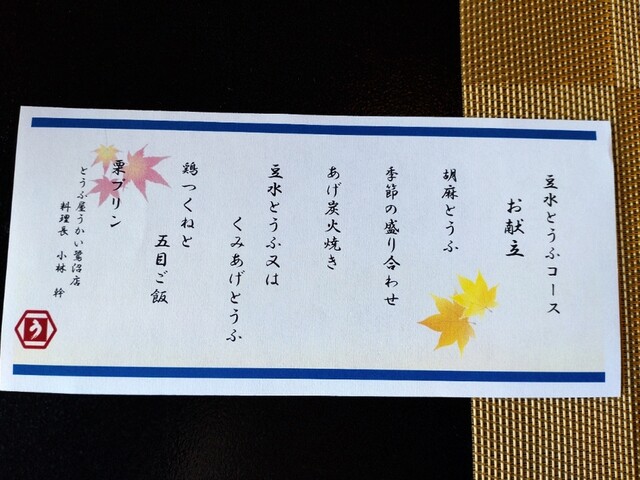 豆水とうふコース
お献立
胡麻とうふ
季節の盛り合わせ
あげ炭火焼き
豆水とうふ又は
くみあげとうふ
鶏つくねと
五目ご飯
栗プリン
とうふ屋うかい鷺沼店
料理長 小林 幹
う